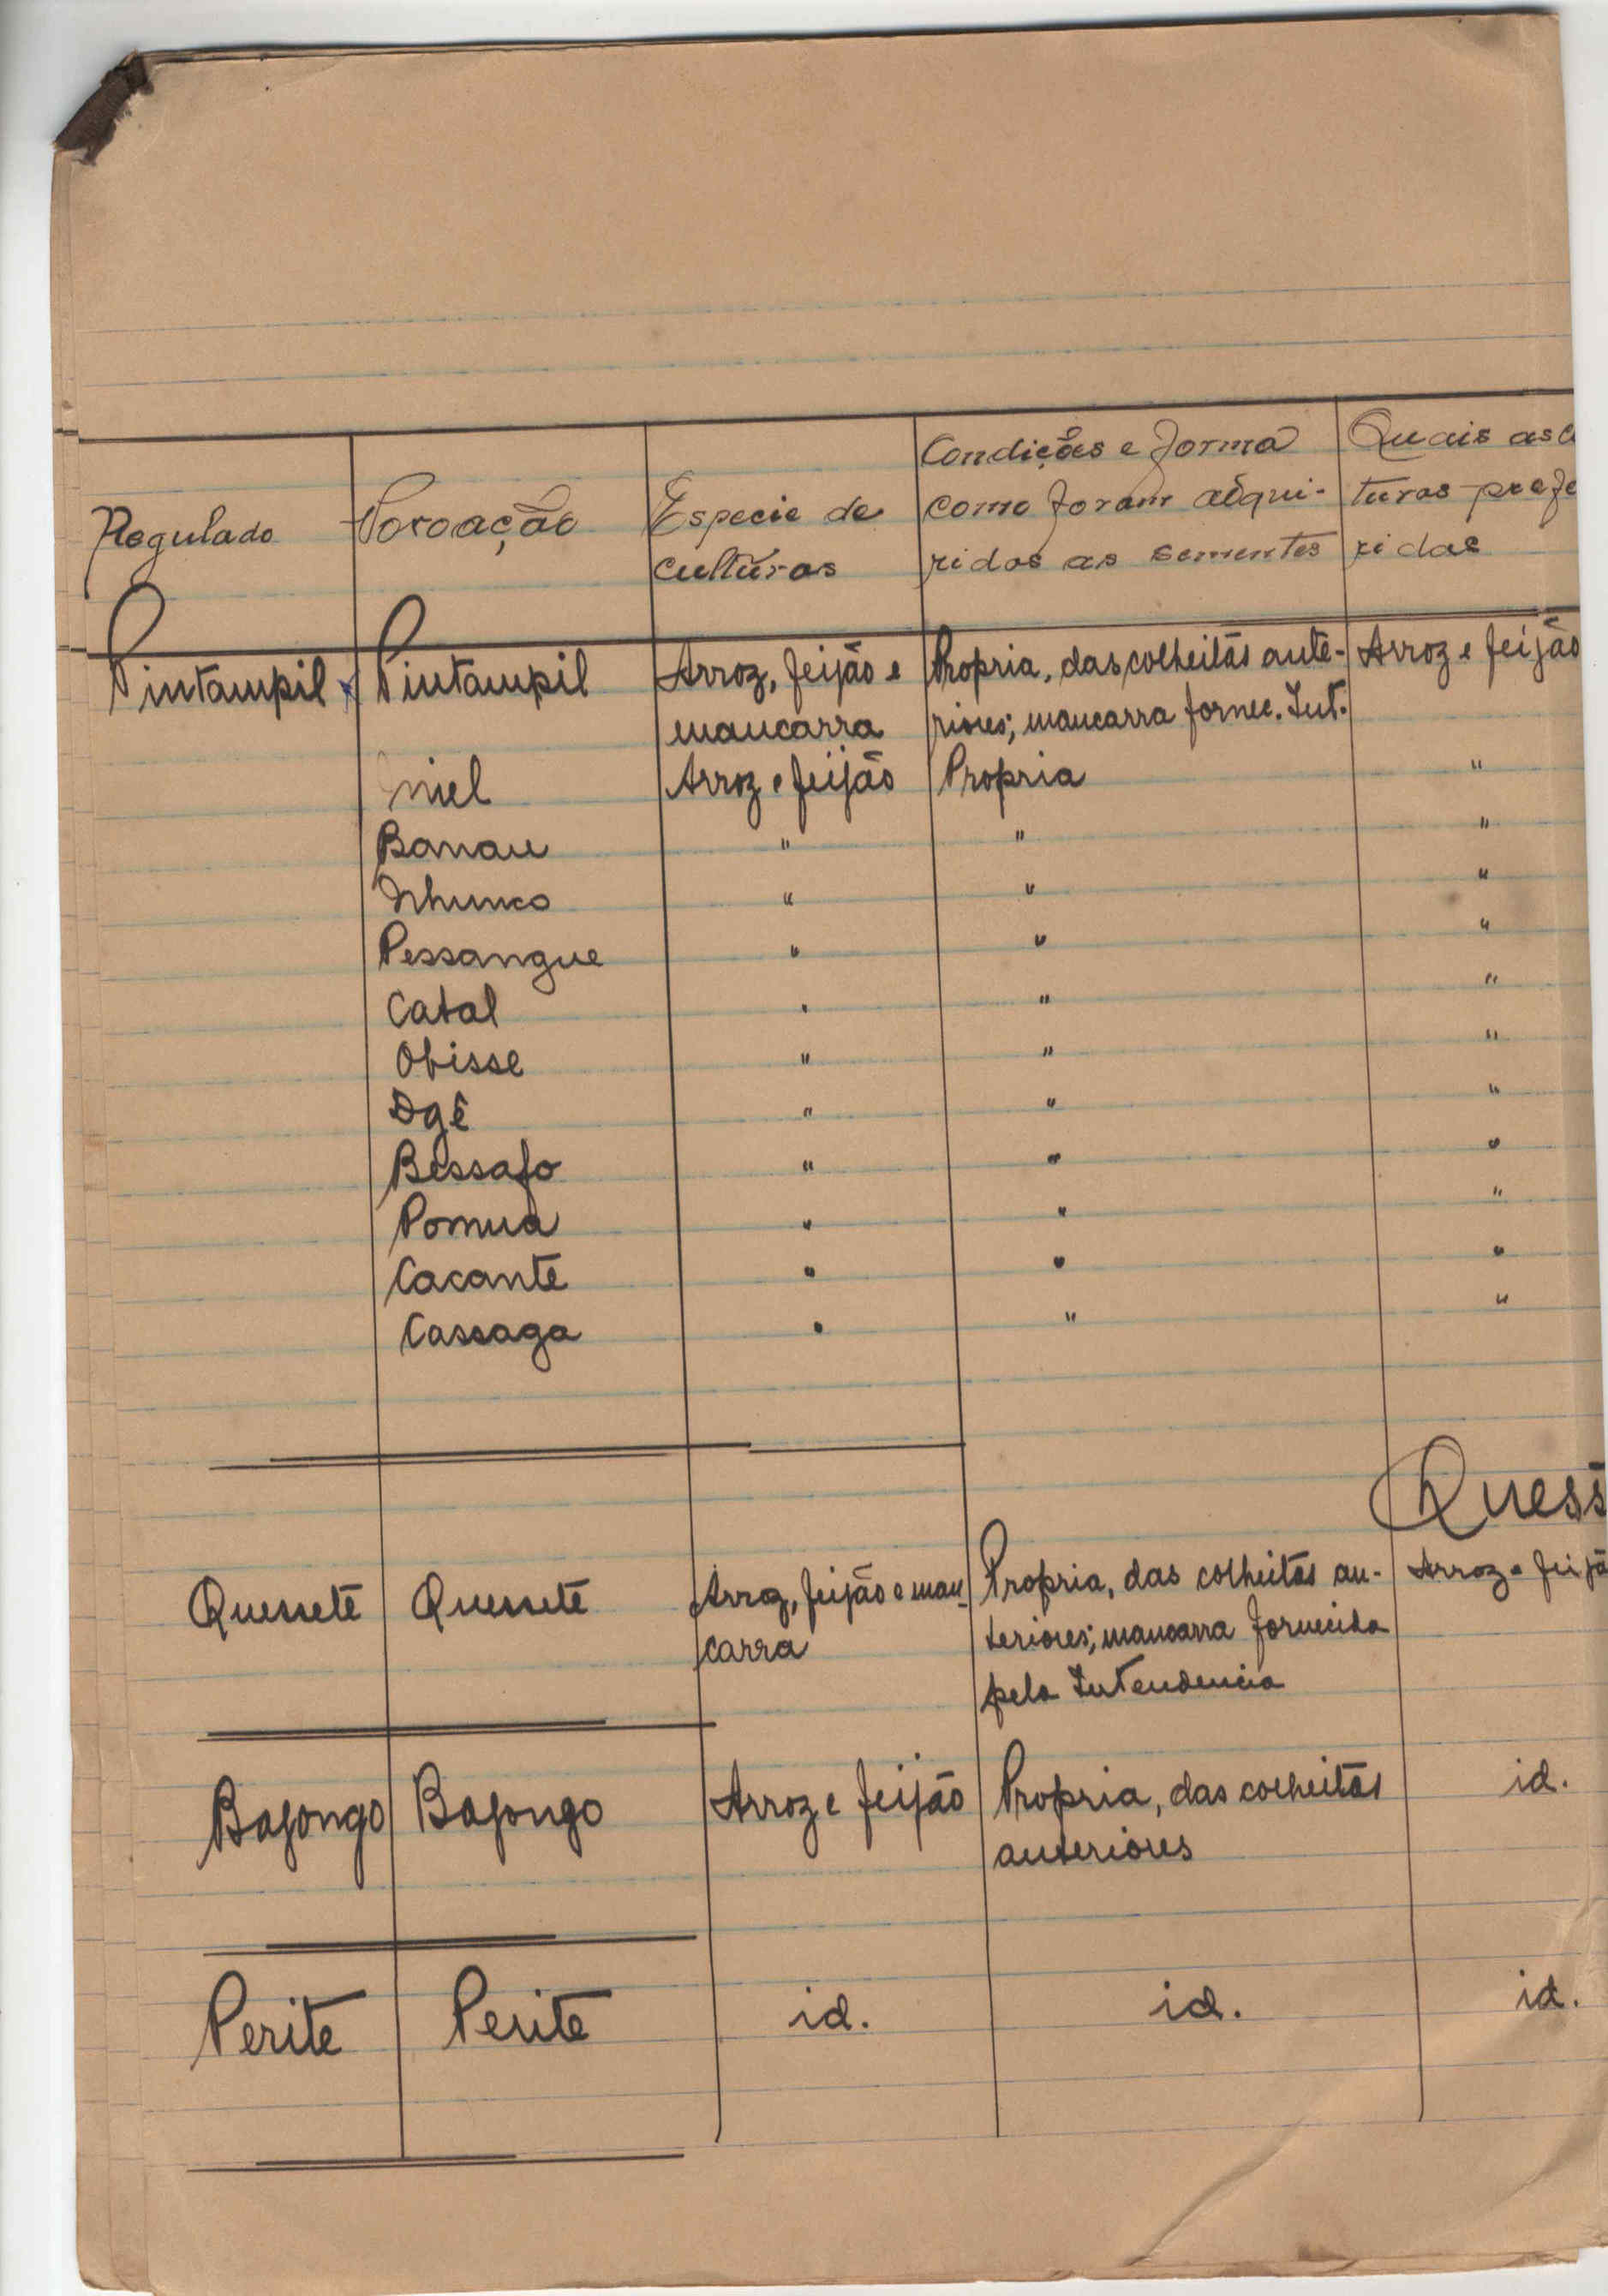 Regulado Povoação Especie de culturas Condições e forma como foram adqui- ridas as sementes Quais as c turas prefe ridas
Pintampil Pintampil Arroz, feijão e Propria, das colheitas ante- Arroz e feijão
mancarra riores; mancarra fornec. Int.
niel Arroz e feijão Propria "
Banau " " "
Nhunco " " "
Pessangue " " "
Catal " " "
Obisse " " "
Dgê " " "
Bessafo " " "
Pomua " " "
Cacante " " "
Cassaga " " "
Quess
Quessete Quessete Arroz, feijão e man- Propria, das colheitas an- Arroz e feijã
carra teriores; mancarra fornecida
pela Intendencia
Bajongo Bajongo Arroz e feijão Propria, das colheitas id.
anteriores
Perite Perite id. id. id.